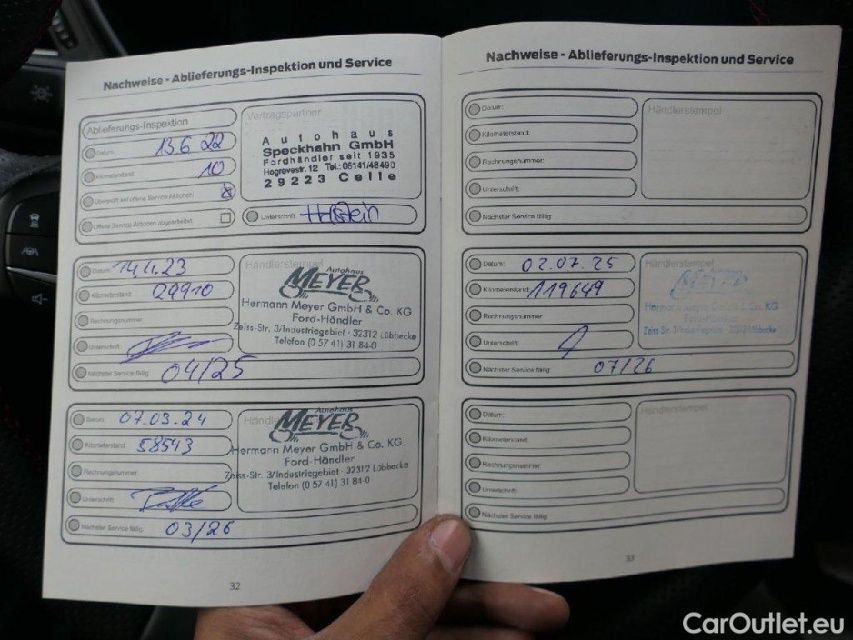 Nachweise - Ablieferungs-Inspektion und Service
Ablieferungs-Inspektion
Datum: 13 6 22
Kilometerstand: 10
Offene Service Aktionen
Vertragspartner
Autohaus
Speckhahn GmbH
Fordhändler seit 1935
Hogrevestr. 12 Tel.: 05141/48490
29223 Celle
Unterschrift:
Datum:
Kilometerstand: 29910
Rechnungsnummer:
Unterschrift:
Nächster Service fällig: 04/25
Händlerstempel
Autohaus
MEYER
Hermann Meyer GmbH & Co. KG
Ford-Händler
Zeiss-Str. 3/Industriegebiet · 32312 Lübbecke
Telefon (0 57 41) 31 84-0
Datum: 07.03.24
Kilometerstand: 58543
Rechnungsnummer:
Unterschrift:
Nächster Service fällig: 03/26
Autohaus
MEYER
Hermann Meyer GmbH & Co. KG
Ford-Händler
Zeiss-Str. 3/Industriegebiet · 32312 Lübbecke
Telefon (0 57 41) 31 84-0
32
Nachweise - Ablieferungs-Inspektion und Service
Datum:
Kilometerstand:
Rechnungsnummer:
Unterschrift:
Nächster Service fällig:
Händlerstempel
Datum: 02.07.25
Kilometerstand: 119649
Rechnungsnummer:
Unterschrift:
Nächster Service fällig: 07/26
Händlerstempel
MEYER
Hermann Meyer GmbH & Co. KG
Datum:
Kilometerstand:
Rechnungsnummer:
Unterschrift:
Nächster Service fällig:
Händlerstempel
33
CarOutlet.eu